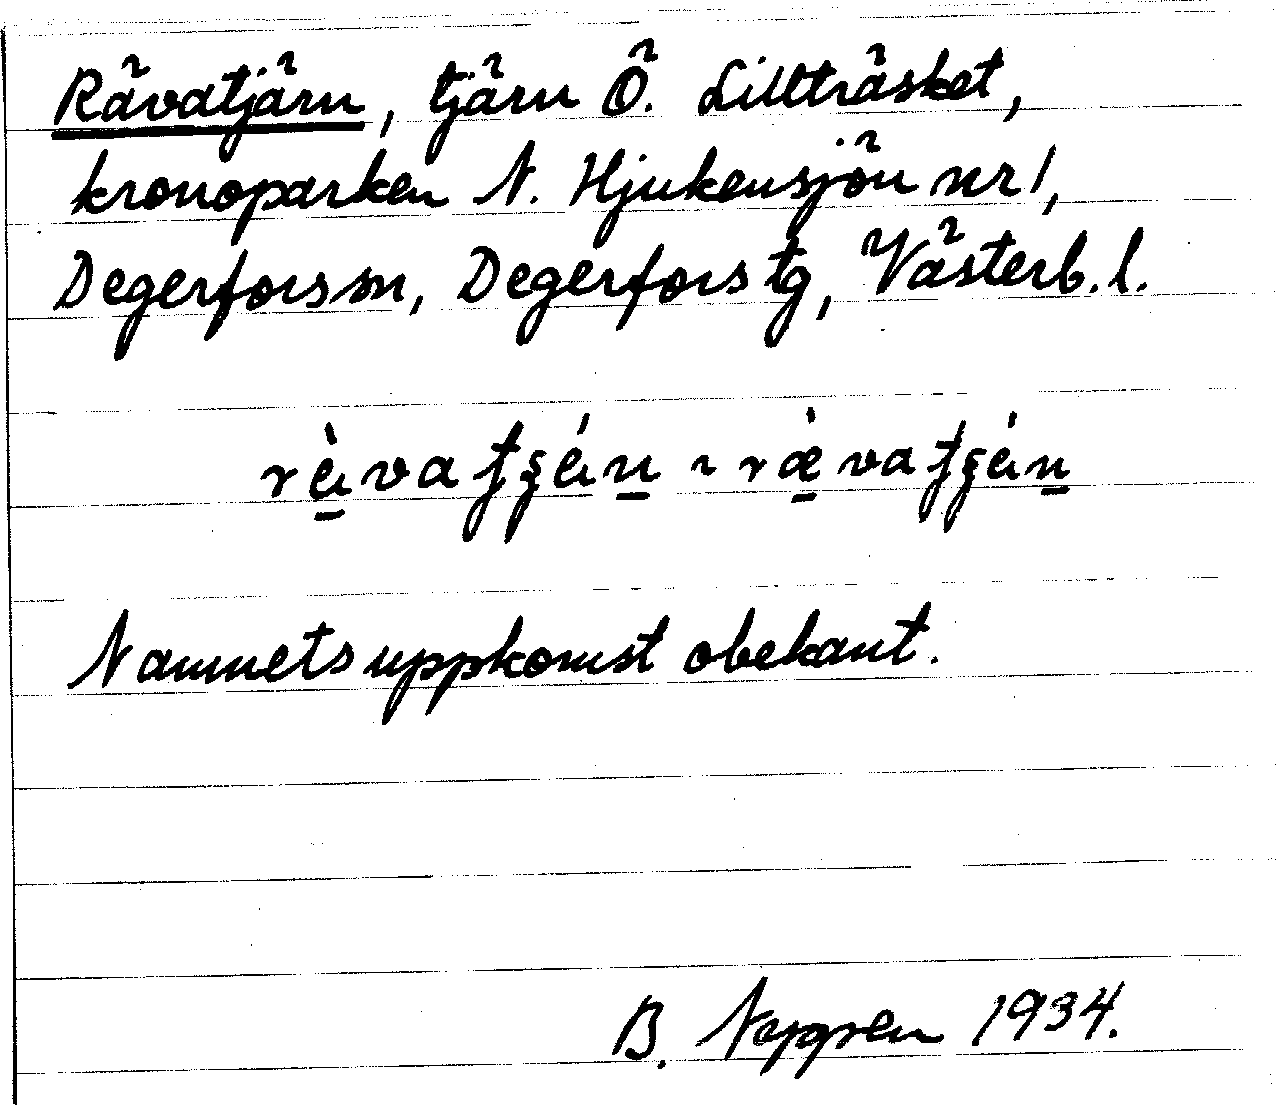 Rävatjärn, tjärn Ö. Lillträsket,
kronoparken N. Hjukensjön nr 1,
Degerfors sn, Degerfors tg, Västerb. l.
Namnets uppkomst obekant.
B. Nygren 1934.